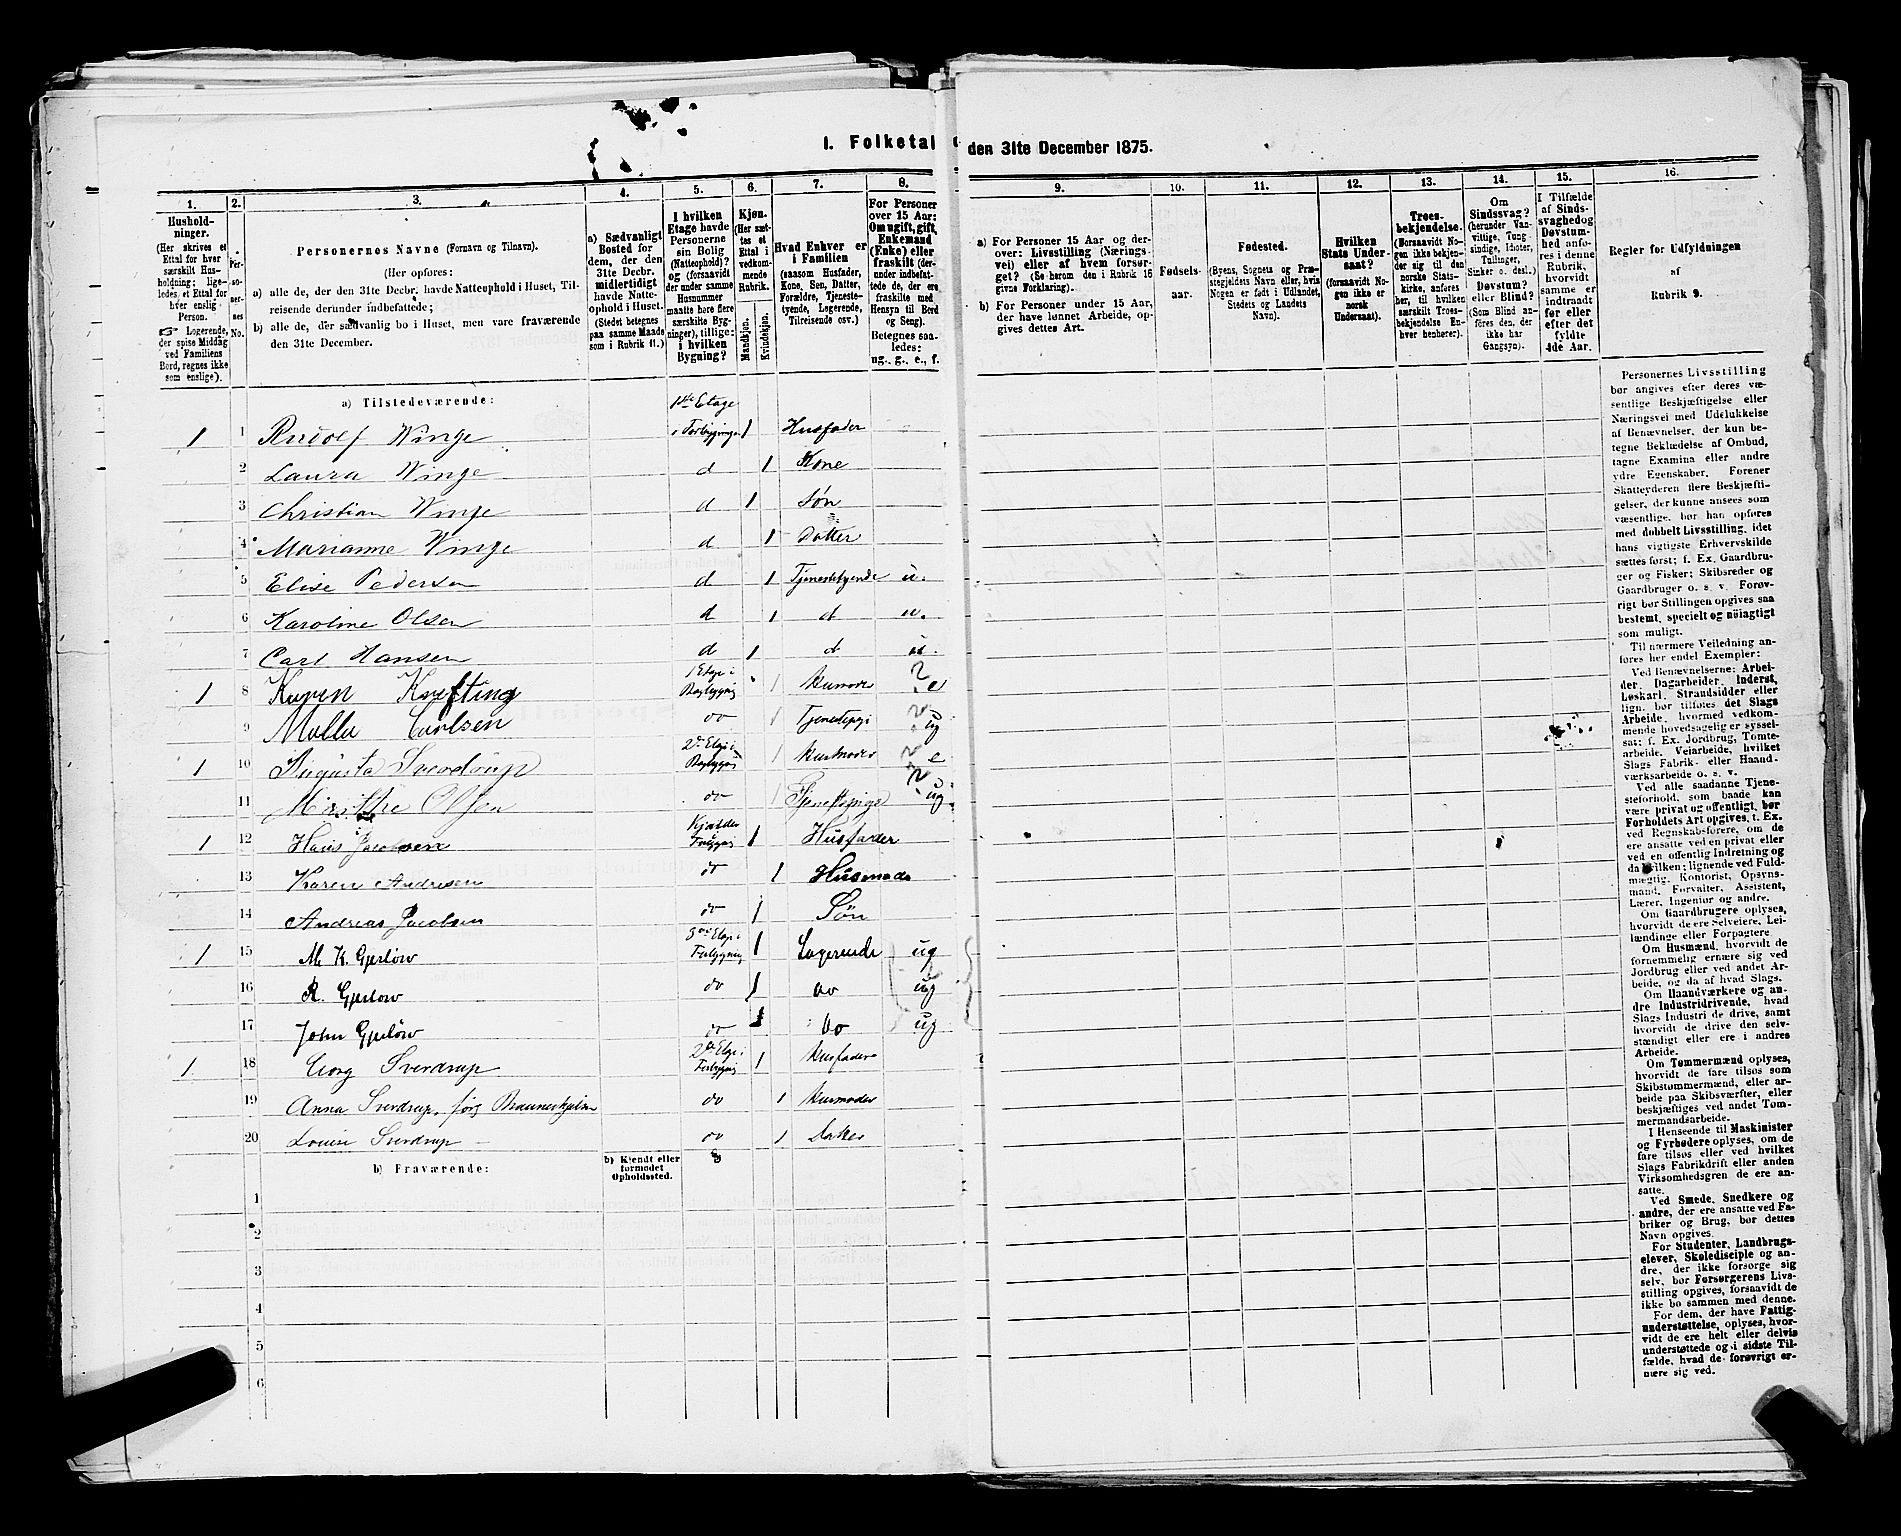 I. Folketal den 31te December 1875.
1. 2. 3. 4. 5. 6. 7. 8.
Husholdninger.
(Her skrives et Ettal for hver særskilt Husholdning; ligeledes et Ettal for hver enslig Person.
☞ Logerende, der spise Middag ved Familiens Bord, regnes ikke som enslige).
Personernes No.
Personernes Navne (Fornavn og Tilnavn).
(Her opføres:
a) alle de, der den 31te Decbr. havde Natteophold i Huset, Tilreisende derunder indbefattede;
b) alle de, der sædvanlig bo i Huset, men vare fraværende den 31te December.
a) Sædvanligt Bosted for dem, der den 31te Decbr. midlertidigt havde Natteophold i Huset. (Stedet betegnes paa samme Maade som i Rubrik 11.)
I hvilken Etage havde Personerne sin Bolig (Natteophold)? og (forsaavidt der under samme Husnummer maatte høre flere særskilte Bygninger), tillige: i hvilken Bygning?
Kjøn.
(Her sættes et Ettal i vedkommende Rubrik.
Mandkjøn. Kvindekjøn.
Hvad Enhver er i Familien
(saasom Husfader, Kone, Søn, Datter, Forældre, Tjenestetyende, Logerende, Tilreisende osv.)
For Personer over 15 Aar: Om ugift, gift, Enkemand (Enke) eller fraskilt (derunder indbefattede de, der ere fraskilte med Hensyn til Bord og Seng).
Betegnes saaledes: ug., g., e., f.
a) Tilstedeværende:
1ste Etage
1 1 Rudolf Winge i Forbygning 1 Husfader
2 Laura Winge d 1 Kone
3 Christian Winge d 1 Søn
4 Marianne Winge d 1 Datter
5 Elise Pedersen d 1 Tjenestetyende u.
6 Karoline Olsen d 1 d u.
7 Carl Hansen d 1 d u.
1 8 Karen Krefting 1 Etage i Bagbygnig 1 Husmoder ? e
9 Malla Carlsen do 1 Tjenestepige ? ug
1 10 Augusta Sverdrup 2den Etage i Bagbygnig 1 Husmoder ? e
11 Olsen do 1 Tjenestepige ? ug
1 12 Hans Jacobsen Kjælder Forbygnig 1 Husfader
13 Karen Andresen do 1 Husmoder
14 Andreas Jacobsen do 1 Søn
1 15 M. K. Gjerløw Forbygning 1 Logerende ug
16 R. Gjerløw do 1 do ug
17 John Gjerløw do 1 do ug
1 18 Georg Sverdrup 2den Etage i Forbygnig 1 Husfader
19 Anna Sverdrup, do 1 Husmoder
20 Louise Sverdrup do 1 Datter
b) Fraværende:
b) Kjendt eller formodet Opholdssted.
1
2
3
4
5
6
9. 10. 11. 12. 13. 14. 15. 16.
a) For Personer 15 Aar og derover: Livsstilling (Næringsvei) eller af hvem forsørget? (Se herom den i Rubrik 16 givne Forklaring).
b) For Personer under 15 Aar, der have lønnet Arbeide, opgives dettes Art.
Fødselsaar.
Fødested.
(Byens, Sognets og Præstegjeldets Navn eller, hvis Nogen er født i Udlandet, Stedets og Landets Navn).
Hvilken Stats Undersaat?
(forsaavidt Nogen ikke er norsk Undersaat).
Troesbekjendelse.
(Forsaavidt Nogen ikke bekjender sig til den norske Statskirke, anføres her, til hvilken særskilt Troesbekjendelse Enhver henhører).
Om Sindssvag? (herunder Vanvittige, Tungsindige, Idioter, Tullinger, Sinker o. desl.) Døvstum? eller Blind? (Som Blind anføres den, der ikke har Gangsyn).
I Tilfælde af Sindssvaghed og Døvstumhed anføres i denne Rubrik, hvorvidt samme er indtraadt før eller efter det fyldte 4de Aar.
Regler for Udfyldningen af Rubrik 9.
Personernes Livsstilling bør angives efter deres væsentlige Beskjæftigelse eller Næringsvei med Udelukkelse af Benævnelser, der kun betegne Beklædelse af Ombud, tagne Examina eller andre ydre Egenskaber. Forener Skatteyderen flere Beskjæftigelser, der kunne ansees som væsentlige, bør han opføres med dobbelt Livsstilling, idet hans vigtigste Erhvervskilde sættes først; f. Ex. Gaardbruger og Fisker; Skibsreder og Gaardbruger o. s. v. Forøvrigt bør Stillingen opgives saa bestemt, specielt og nøiagtigt som muligt.
Til nærmere Veiledning anføres her endel Exempler:
Ved Benævnelserne: Arbeider, Dagarbeider, Inderst, Løskarl, Strandsidder eller lign. bør tilføres det Slags Arbeide, hvormed vedkommende hovedsagelig er sysselsat; f. Ex. Jordbrug, Tomtearbeide, Veiarbeide, hvilket Slags Fabrik- eller Haandværksarbeide o. s. v.
Ved alle saadanne Tjenesteforhold, som baade kan være privat og offentligt, bør Forholdets Art opgives, t. Ex. ved Regnskabsførere, om de ere ansatte ved en privat eller ved en offentlig Indretning og da hvilken; lignende ved Fuldmægtig, Kontorist, Opsynsmand, Forvalter, Assistent, Lærer, Ingeniør og andre.
Om Gaardbrugere oplyses, hvorvidt de ere Selveiere, Leilændinge eller Forpagtere.
Om Husmænd, hvorvidt de fornemmelig ernære sig ved Jordbrug eller ved andet Arbeide, og da af hvad Slags.
Om Haandværkere og andre Industridrivende, hvad Slags Industri de drive, samt hvorvidt de drive den selvstændigt eller ere i andres Arbeide.
Om Tømmermænd oplyses, hvorvidt de fare tilsøs som Skibstømmermænd, eller arbeide paa Skibsværfter, eller beskjæftiges ved andet Tømmermandsarbeide.
I Henseende til Maskinister og Fyrbødere oplyses, om de fare tilsøs eller ved hvilket Slags Fabrikdrift eller anden Virksomhedsgren de ere ansatte.
Ved Smede, Snedkere og andre, der ere ansatte ved Fabriker og Brug, bør dettes Navn opgives.
For Studenter, Landbrugselever, Skoledisciple og andre, der ikke forsørge sig selv, bør Forsørgerens Livsstilling opgives, forsaavidt de ikke bo sammen med denne.
For dem, der have Fattigunderstøttelse, oplyses, hvorvidt de ere helt eller delvis understøttede og i sidste Tilfælde, hvad de forøvrigt ernære sig ved.